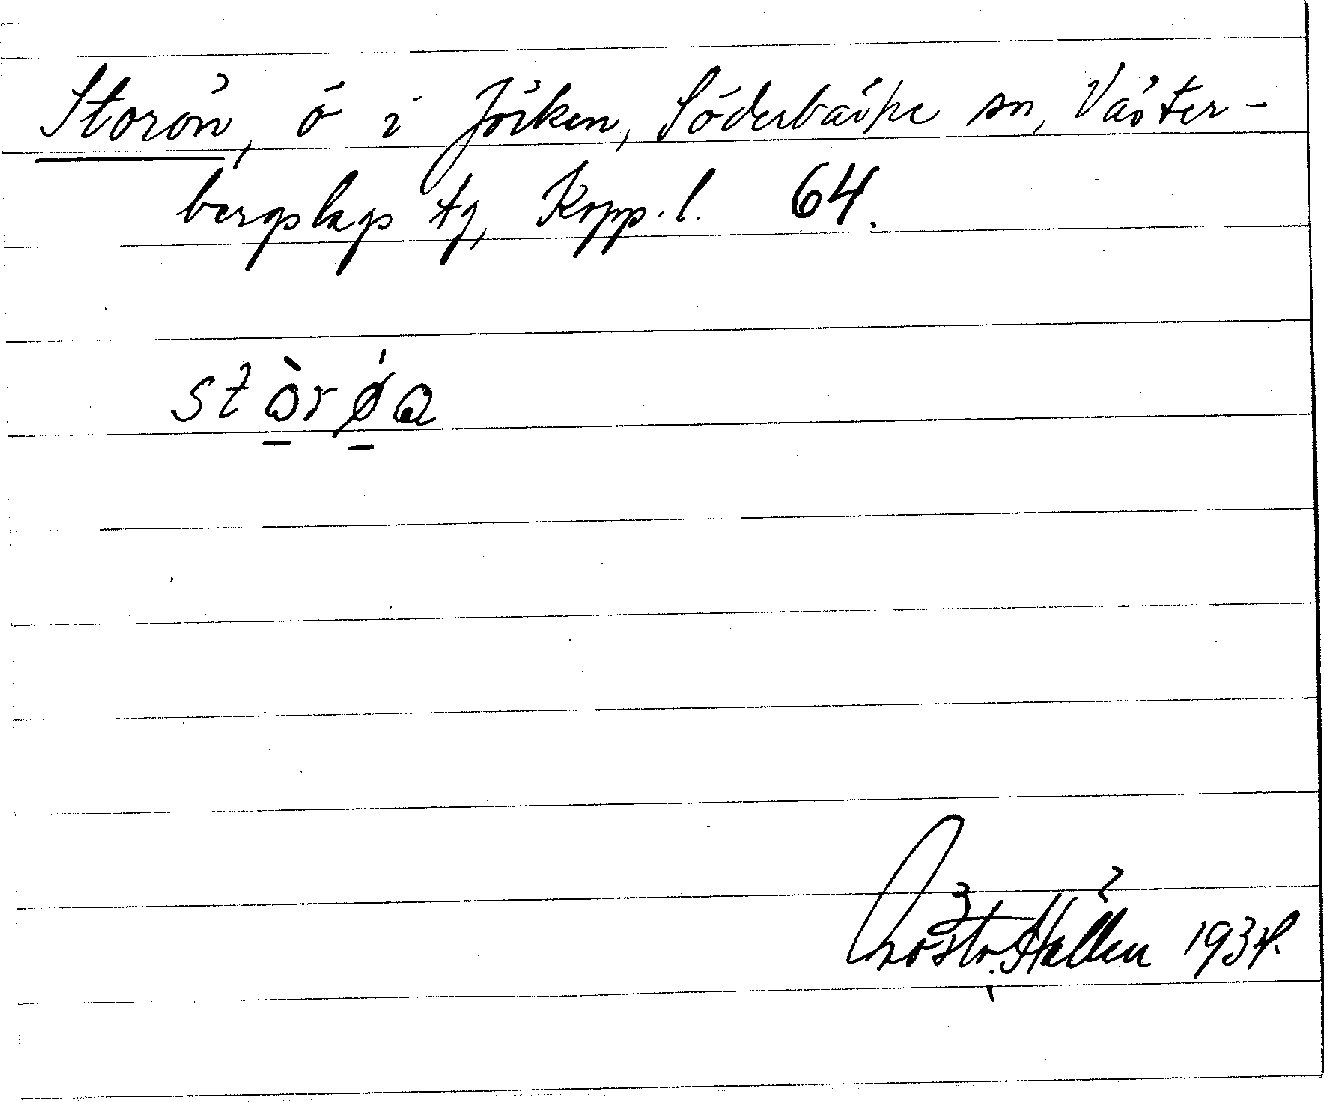 Storön, ö i Jöiken, Söderbärke sn, Väster-
bergslags tg, Kopp. l. 64.
stòrǿa
Gösta Hallén 1934.